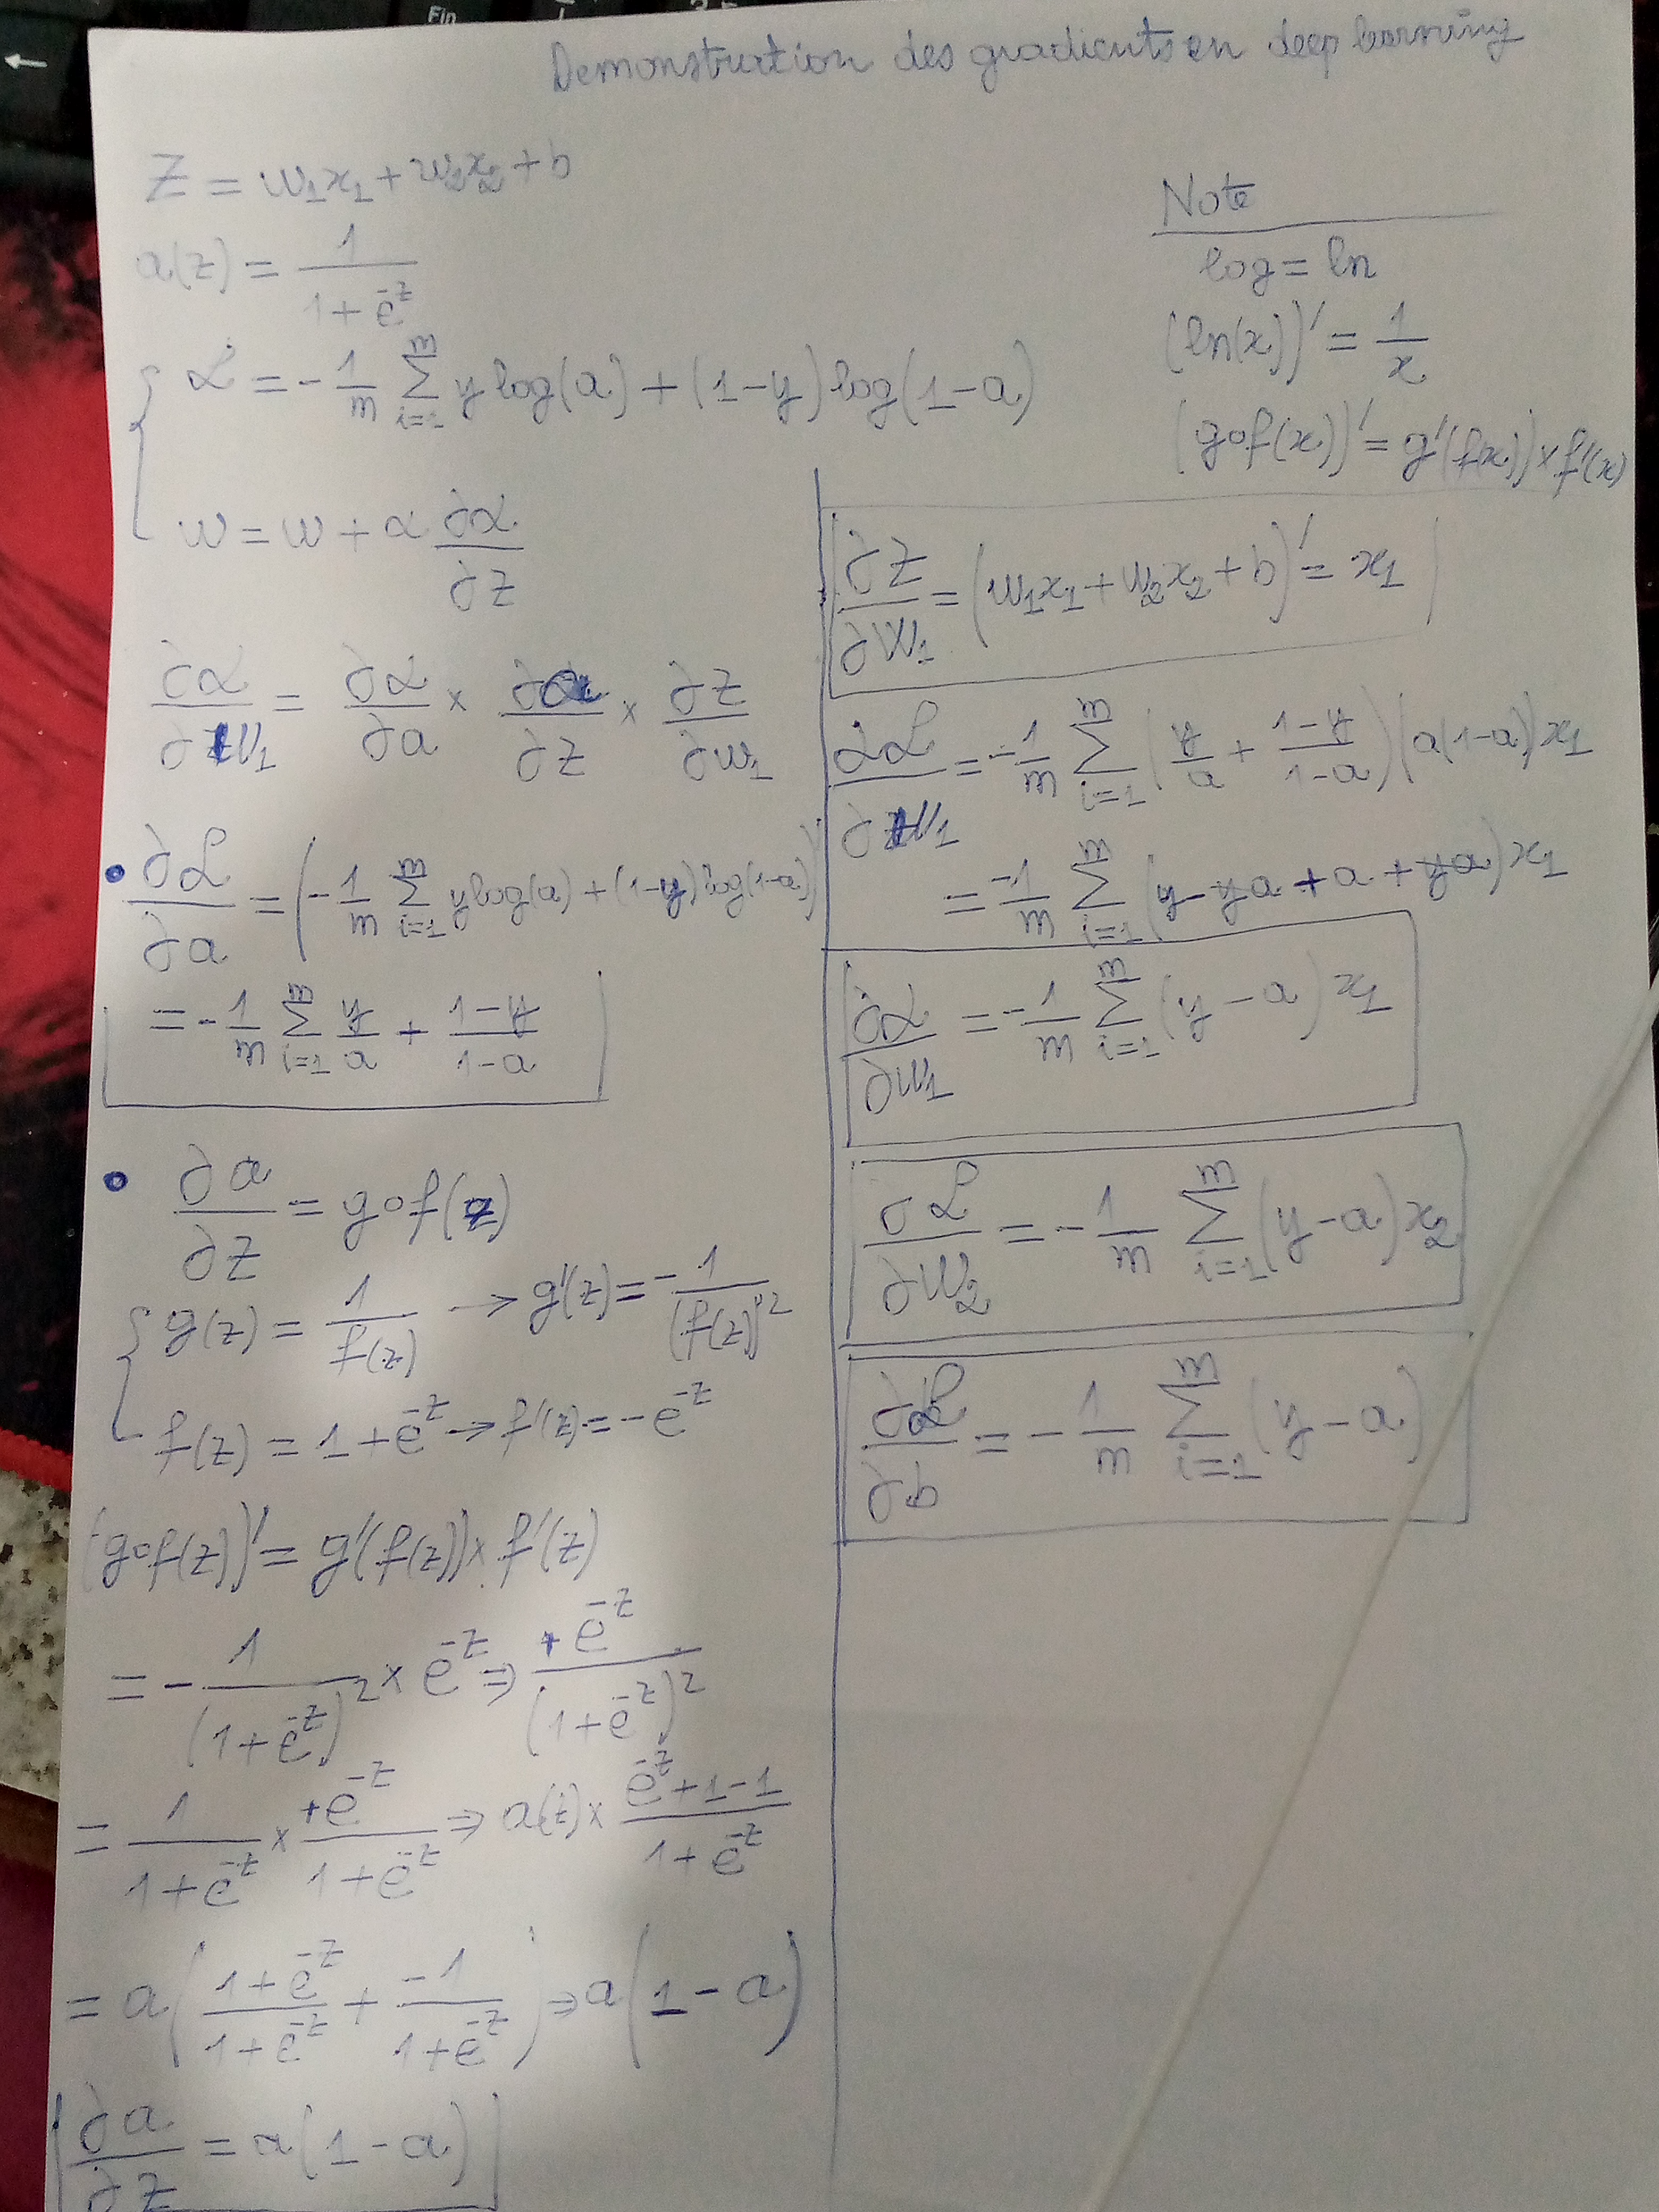 Fin
Demonstration des gradients en deep learning
Z = w₁x₁ + w₂x₂ + b
a(z) = 1 / (1 + e^-z)
ℒ = -1/m Σ_{i=1}^{m} y log(a) + (1-y) log(1-a)
w = w + α ∂ℒ/∂z
∂ℒ/∂w₁ = ∂ℒ/∂a × ∂a/∂z × ∂z/∂w₁
• ∂ℒ/∂a = (-1/m Σ_{i=1}^{m} y log(a) + (1-y) log(1-a))'
= -1/m Σ_{i=1}^{m} y/a + (1-y)/(1-a)
• ∂a/∂z = g∘f(z)
g(z) = 1/f(z) → g'(z) = -1/(f(z))²
f(z) = 1 + e^-z → f'(z) = -e^-z
(g∘f(z))' = g'(f(z)) × f'(z)
= -1/(1+e^-z)² × e^-z ⇒ +e^-z/(1+e^-z)²
= 1/(1+e^-z) × +e^-z/(1+e^-z) ⇒ a(z) × (e^-z+1-1)/(1+e^-z)
= a((1+e^-z)/(1+e^-z) + -1/(1+e^-z)) ⇒ a(1-a)
∂a/∂z = a(1-a)
Note
log = ln
(ln(x))' = 1/x
(g∘f(x))' = g'(f(x)) × f'(x)
∂Z/∂W₁ = (w₁x₁ + w₂x₂ + b)' = x₁
∂ℒ/∂w₁ = -1/m Σ_{i=1}^{m} (y/a + (1-y)/(1-a)) (a(1-a)) x₁
= -1/m Σ_{i=1}^{m} (y - ya + a + ya) x₁
∂ℒ/∂w₁ = -1/m Σ_{i=1}^{m} (y-a) x₁
∂ℒ/∂w₂ = -1/m Σ_{i=1}^{m} (y-a) x₂
∂ℒ/∂b = -1/m Σ_{i=1}^{m} (y-a)